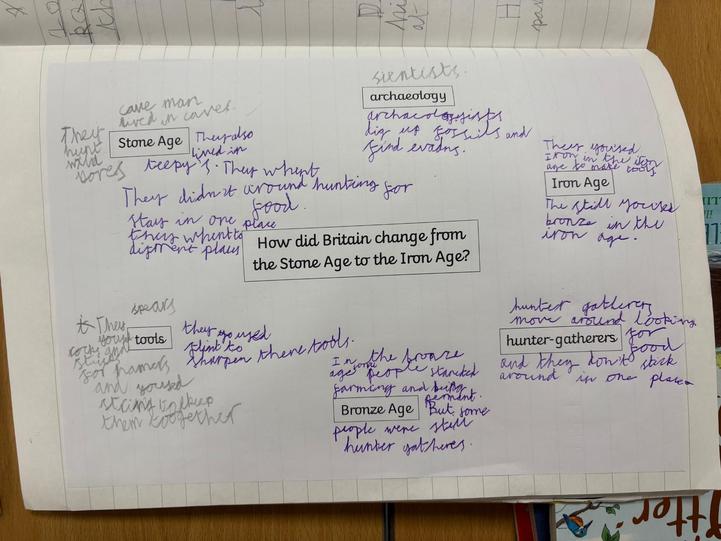 sientists.
archaeology
archaeologists
dig up fossils and
find evadns.
cave man
lived in caves.
They
hunt
wild
bores
Stone Age
They also
lived in
teepy's. They whent
around hunting for
food.
They didn't
stay in one place
they whent to
diffrent places
They yoused
Iron in the iron
age to make tools
Iron Age
The still yoused
bronze in the
iron age.
How did Britain change from
the Stone Age to the Iron Age?
spears
They
yousd
rocks and
sticks
for hamers
and yoused
string to keep
them toogether
tools
they yoused
flint to
sharpen there tools.
In the bronze
age some people starcted
farming and
perment.
Bronze Age
But some
people were still
hunter gatheres.
hunter gatherers
move around looking
for
food
hunter-gatherers
and they don't stick
around in one place.